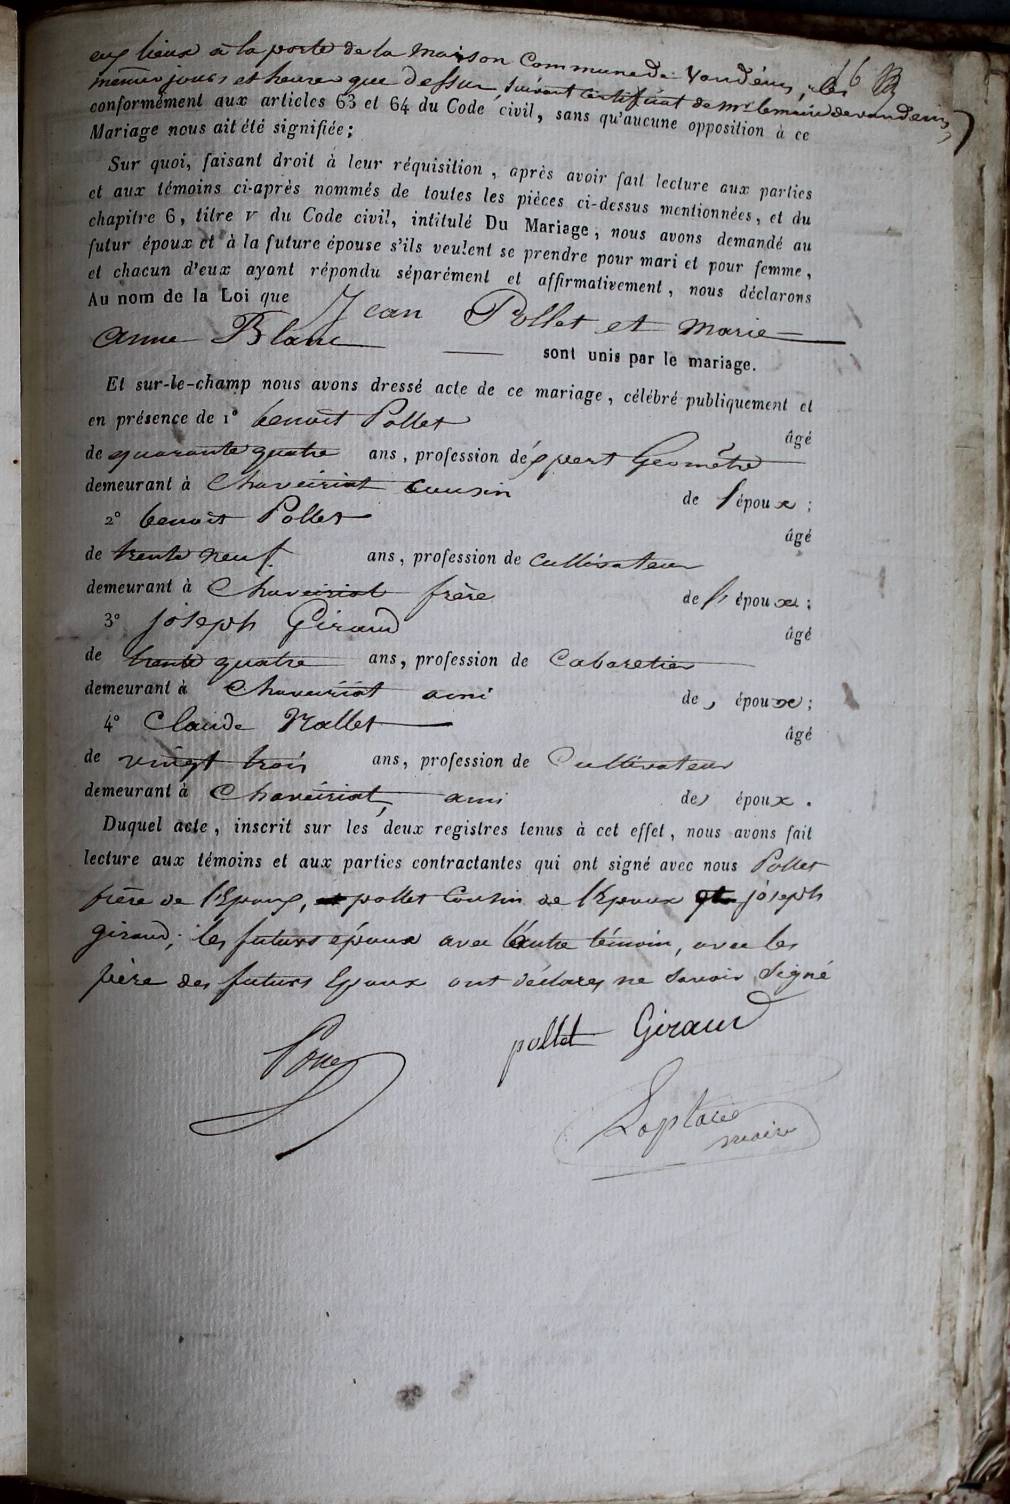 eus lieux a la porte de la maison Commune de Vandéins, les 16 B
mêmes jours et heures que dessus, suivant certificat de mr le maire de vandeins
conformément aux articles 63 et 64 du Code civil, sans qu'aucune opposition à ce
Mariage nous ait été signifiée;
Sur quoi, faisant droit à leur réquisition, après avoir fait lecture aux parties
et aux témoins ci-après nommés de toutes les pièces ci-dessus mentionnées, et du
chapitre 6, titre V du Code civil, intitulé Du Mariage, nous avons demandé au
futur époux et à la future épouse s'ils veulent se prendre pour mari et pour femme,
et chacun d'eux ayant répondu séparément et affirmativement, nous déclarons
Au nom de la Loi que Jean Pollet et marie
anne Blanc sont unis par le mariage.
Et sur-le-champ nous avons dressé acte de ce mariage, célébré publiquement et
en présence de 1° benoit Pollet âgé
de quarante quatre ans, profession d'éxpert Géomètre
demeurant à Chaveiriat cousin de l'époux;
2° benoit Pollet âgé
de trente neuf ans, profession de cultivateur
demeurant à Chaveiriat frère de l'époux;
3° joseph Giraud âgé
de trente quatre ans, profession de Cabaretier
demeurant à Chaveiriat ami de, époux;
4° Claude Mallet âgé
de vingt trois ans, profession de Cultivateur
demeurant à Chaveiriat, ami de, époux.
Duquel acte, inscrit sur les deux registres tenus à cet effet, nous avons fait
lecture aux témoins et aux parties contractantes qui ont signé avec nous Pollet
frère de l'Epoux, pollet Cousin de l'Epoux et joseph
giraud; les futurs époux avec l'autre témoin, avec les
père des futurs Epoux ont déclarés ne savoir signé
pollet Giraud
maire